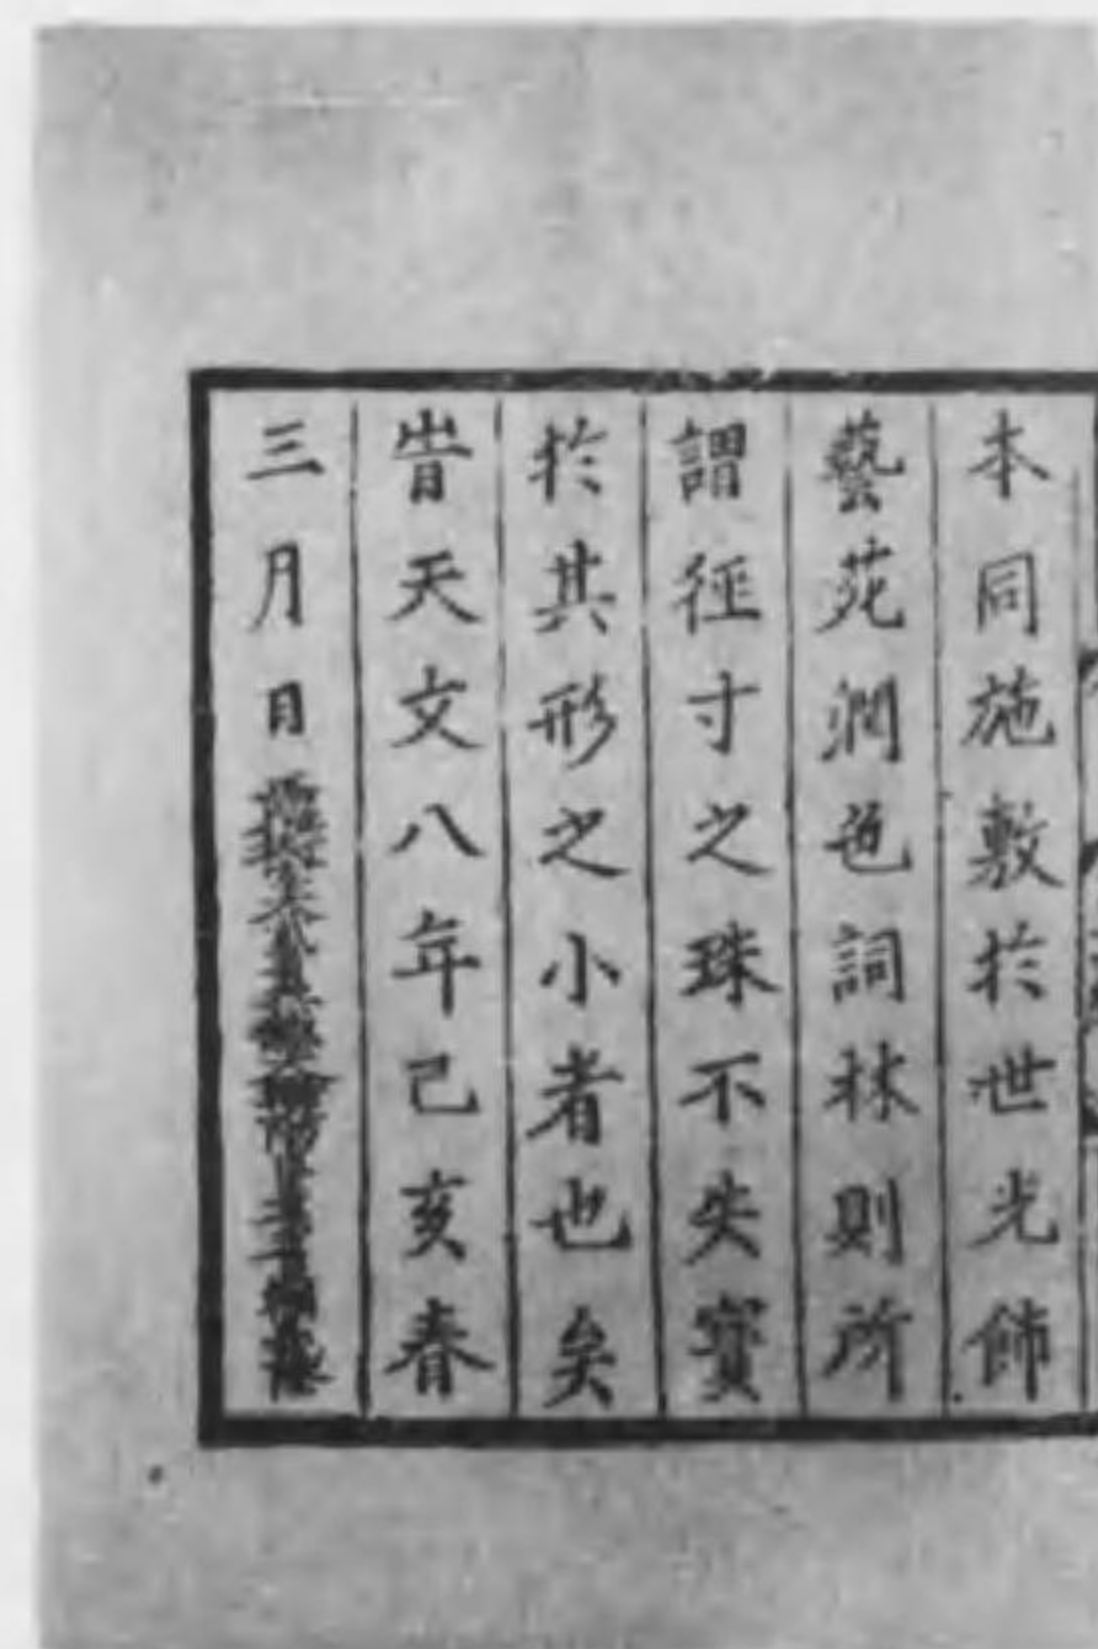 本同施敷於世光飾
藝苑潤色詞林則所
謂徑寸之珠不失寶
於其形之小者也矣
旹天文八年己亥春
三月日